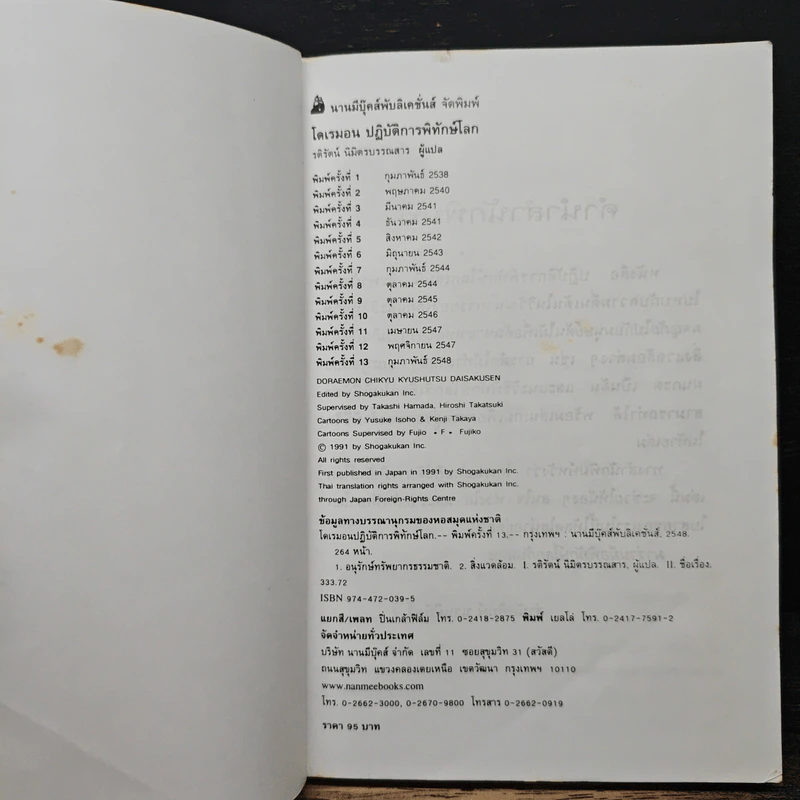 นานมีบุ๊คส์พับลิเคชั่นส์ จัดพิมพ์
โดเรมอน ปฏิบัติการพิทักษ์โลก
รติรัตน์ นิมิตรบรรณสาร ผู้แปล
พิมพ์ครั้งที่ 1 กุมภาพันธ์ 2538
พิมพ์ครั้งที่ 2 พฤษภาคม 2540
พิมพ์ครั้งที่ 3 มีนาคม 2541
พิมพ์ครั้งที่ 4 ธันวาคม 2541
พิมพ์ครั้งที่ 5 สิงหาคม 2542
พิมพ์ครั้งที่ 6 มิถุนายน 2543
พิมพ์ครั้งที่ 7 กุมภาพันธ์ 2544
พิมพ์ครั้งที่ 8 ตุลาคม 2544
พิมพ์ครั้งที่ 9 ตุลาคม 2545
พิมพ์ครั้งที่ 10 ตุลาคม 2546
พิมพ์ครั้งที่ 11 เมษายน 2547
พิมพ์ครั้งที่ 12 พฤศจิกายน 2547
พิมพ์ครั้งที่ 13 กุมภาพันธ์ 2548
DORAEMON CHIKYU KYUSHUTSU DAISAKUSEN
Edited by Shogakukan Inc.
Supervised by Takashi Hamada, Hiroshi Takatsuki
Cartoons by Yusuke Isoho & Kenji Takaya
Cartoons Supervised by Fujio • F • Fujiko
© 1991 by Shogakukan Inc.
All rights reserved
First published in Japan in 1991 by Shogakukan Inc.
Thai translation rights arranged with Shogakukan Inc.
through Japan Foreign-Rights Centre
ข้อมูลทางบรรณานุกรมของหอสมุดแห่งชาติ
โดเรมอนปฏิบัติการพิทักษ์โลก.-- พิมพ์ครั้งที่ 13.-- กรุงเทพฯ : นานมีบุ๊คส์พับลิเคชั่นส์, 2548.
264 หน้า.
1. อนุรักษ์ทรัพยากรธรรมชาติ. 2. สิ่งแวดล้อม. I. รติรัตน์ นิมิตรบรรณสาร, ผู้แปล. II. ชื่อเรื่อง.
333.72
ISBN 974-472-039-5
แยกสี/เพลท ปิ่นเกล้าฟิล์ม โทร. 0-2418-2875 พิมพ์ เยลโล่ โทร. 0-2417-7591-2
จัดจำหน่ายทั่วประเทศ
บริษัท นานมีบุ๊คส์ จำกัด เลขที่ 11 ซอยสุขุมวิท 31 (สวัสดี)
ถนนสุขุมวิท แขวงคลองเตยเหนือ เขตวัฒนา กรุงเทพฯ 10110
www.nanmeebooks.com
โทร. 0-2662-3000, 0-2670-9800 โทรสาร 0-2662-0919
ราคา 95 บาท